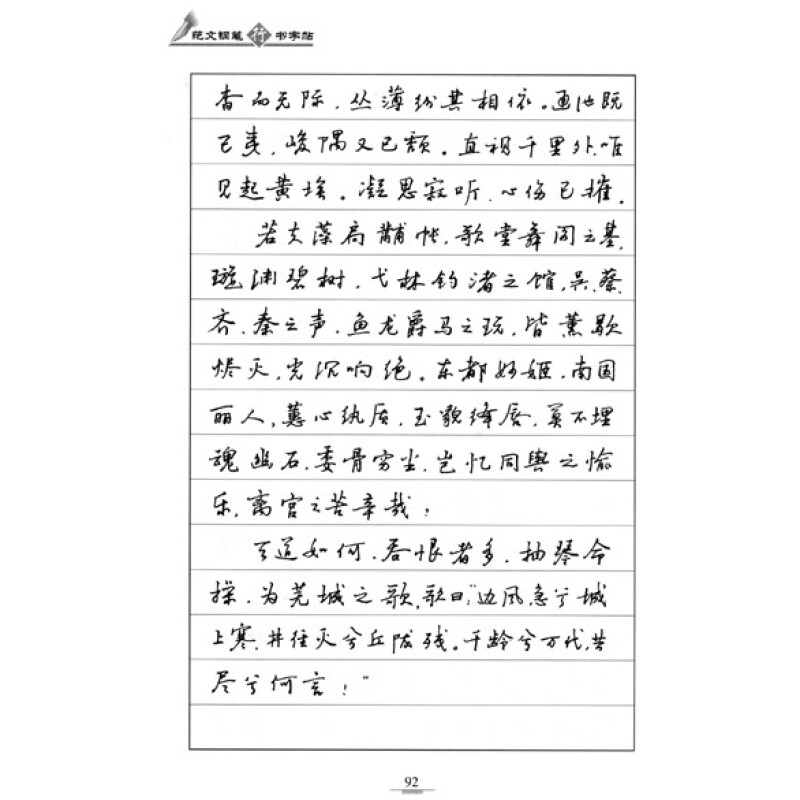 范文钢笔行书字帖
杳而无际，丛薄纷其相依。通池既
已夷，峻隅又已颓。直视千里外，唯
见起黄埃。凝思寂听，心伤已摧。
若夫藻扃黼帐，歌堂舞阁之基，
璇渊碧树，弋林钓渚之馆，吴、蔡、
齐、秦之声，鱼龙爵马之玩，皆薰歇
烬灭，光沉响绝。东都妙姬，南国
丽人，蕙心纨质，玉貌绛唇，莫不埋
魂幽石，委骨穷尘，岂忆同舆之愉
乐，离宫之苦辛哉！
天道如何，吞恨者多，抽琴命
操，为芜城之歌，歌曰：“边风急兮城
上寒，井径灭兮丘陇残。千龄兮万代，共
尽兮何言！”
92